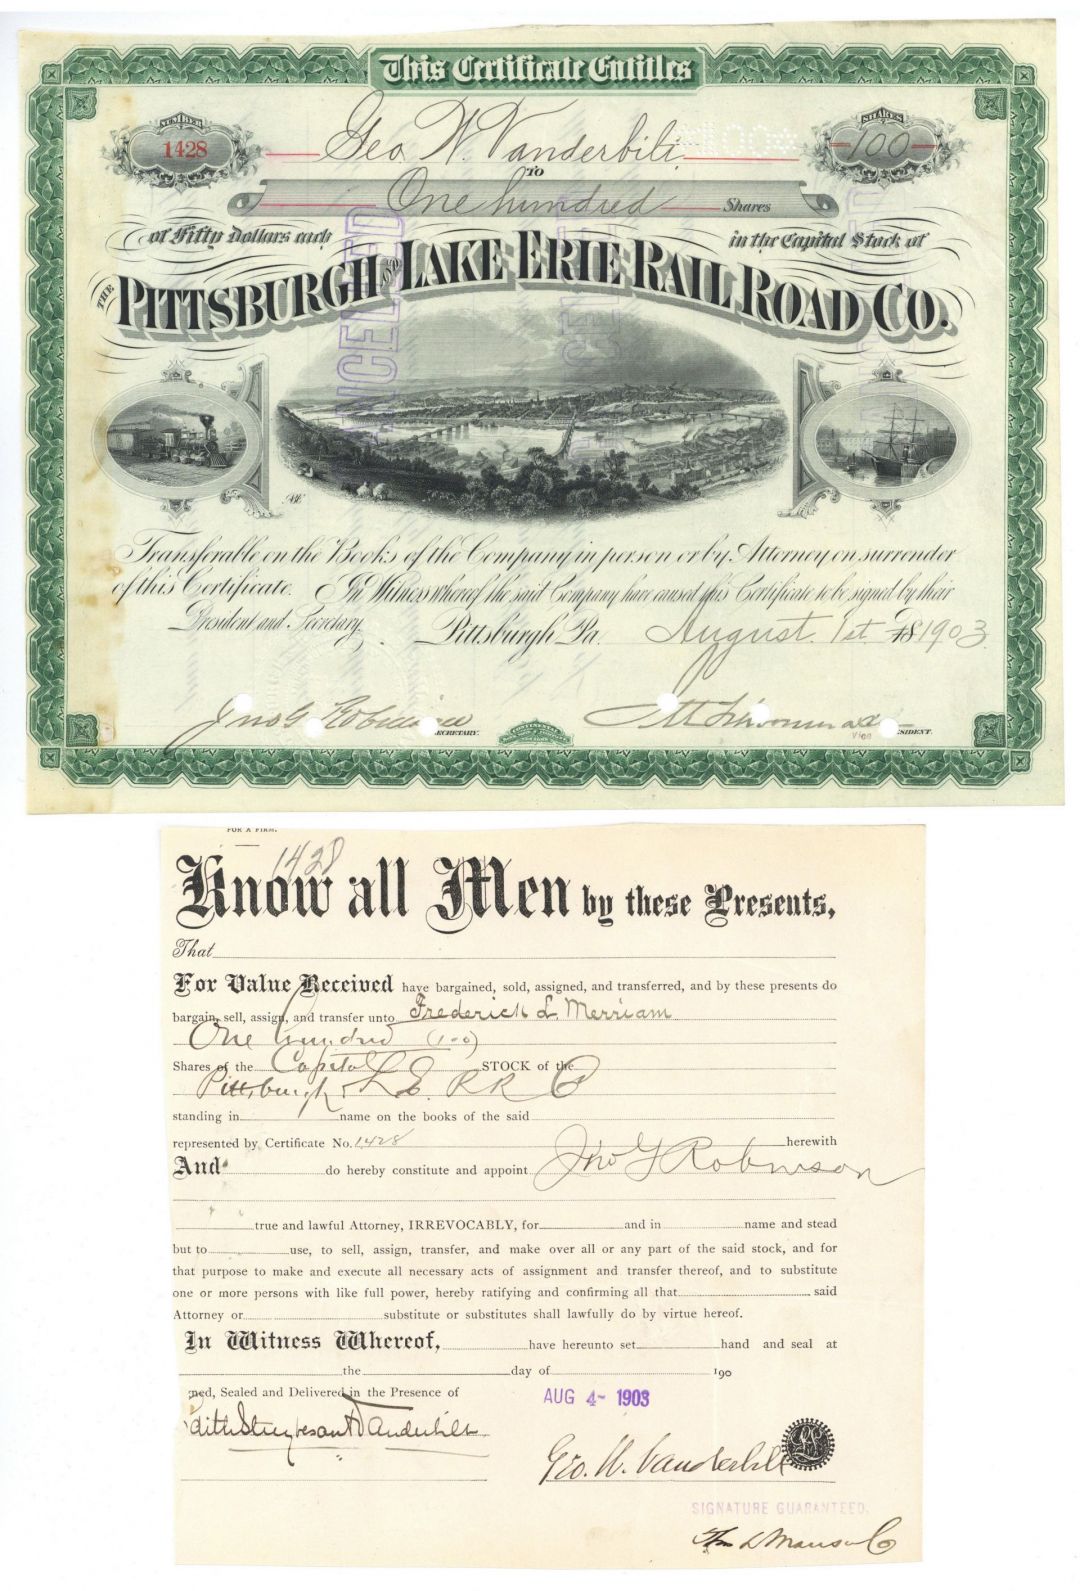 This Certificate Entitles
NUMBER
1428
SHARES
100
Geo. W. Vanderbilt
TO
One hundred Shares
of Fifty Dollars each
in the Capital Stock of
THE PITTSBURGH AND LAKE ERIE RAIL ROAD CO.
CANCELLED
Transferable on the Books of the Company in person or by Attorney on surrender
of this Certificate. In Witness whereof the said Company have caused this Certificate to be signed by their
President and Secretary. Pittsburgh Pa. August 1st 18 1903
Jno G Robinson
SECRETARY.
PRESIDENT.
CONTINENTAL
FOR A FIRM.
1428
Know all Men by these Presents,
That
For Value Received have bargained, sold, assigned, and transferred, and by these presents do
bargain, sell, assign, and transfer unto Frederick L Merriam
One hundred (100)
Shares of the Capital STOCK of the
Pittsburgh & L E. RR Co
standing in name on the books of the said
represented by Certificate No. 1428 herewith
And do hereby constitute and appoint Jno G Robinson
true and lawful Attorney, IRREVOCABLY, for and in name and stead
but to use, to sell, assign, transfer, and make over all or any part of the said stock, and for
that purpose to make and execute all necessary acts of assignment and transfer thereof, and to substitute
one or more persons with like full power, hereby ratifying and confirming all that said
Attorney or substitute or substitutes shall lawfully do by virtue hereof.
In Witness Whereof, have hereunto set hand and seal at
the day of 190
ned, Sealed and Delivered in the Presence of
AUG 4- 1903
dith Stuyvesant Vanderbilt
Geo. W. Vanderbilt
SIGNATURE GUARANTEED.